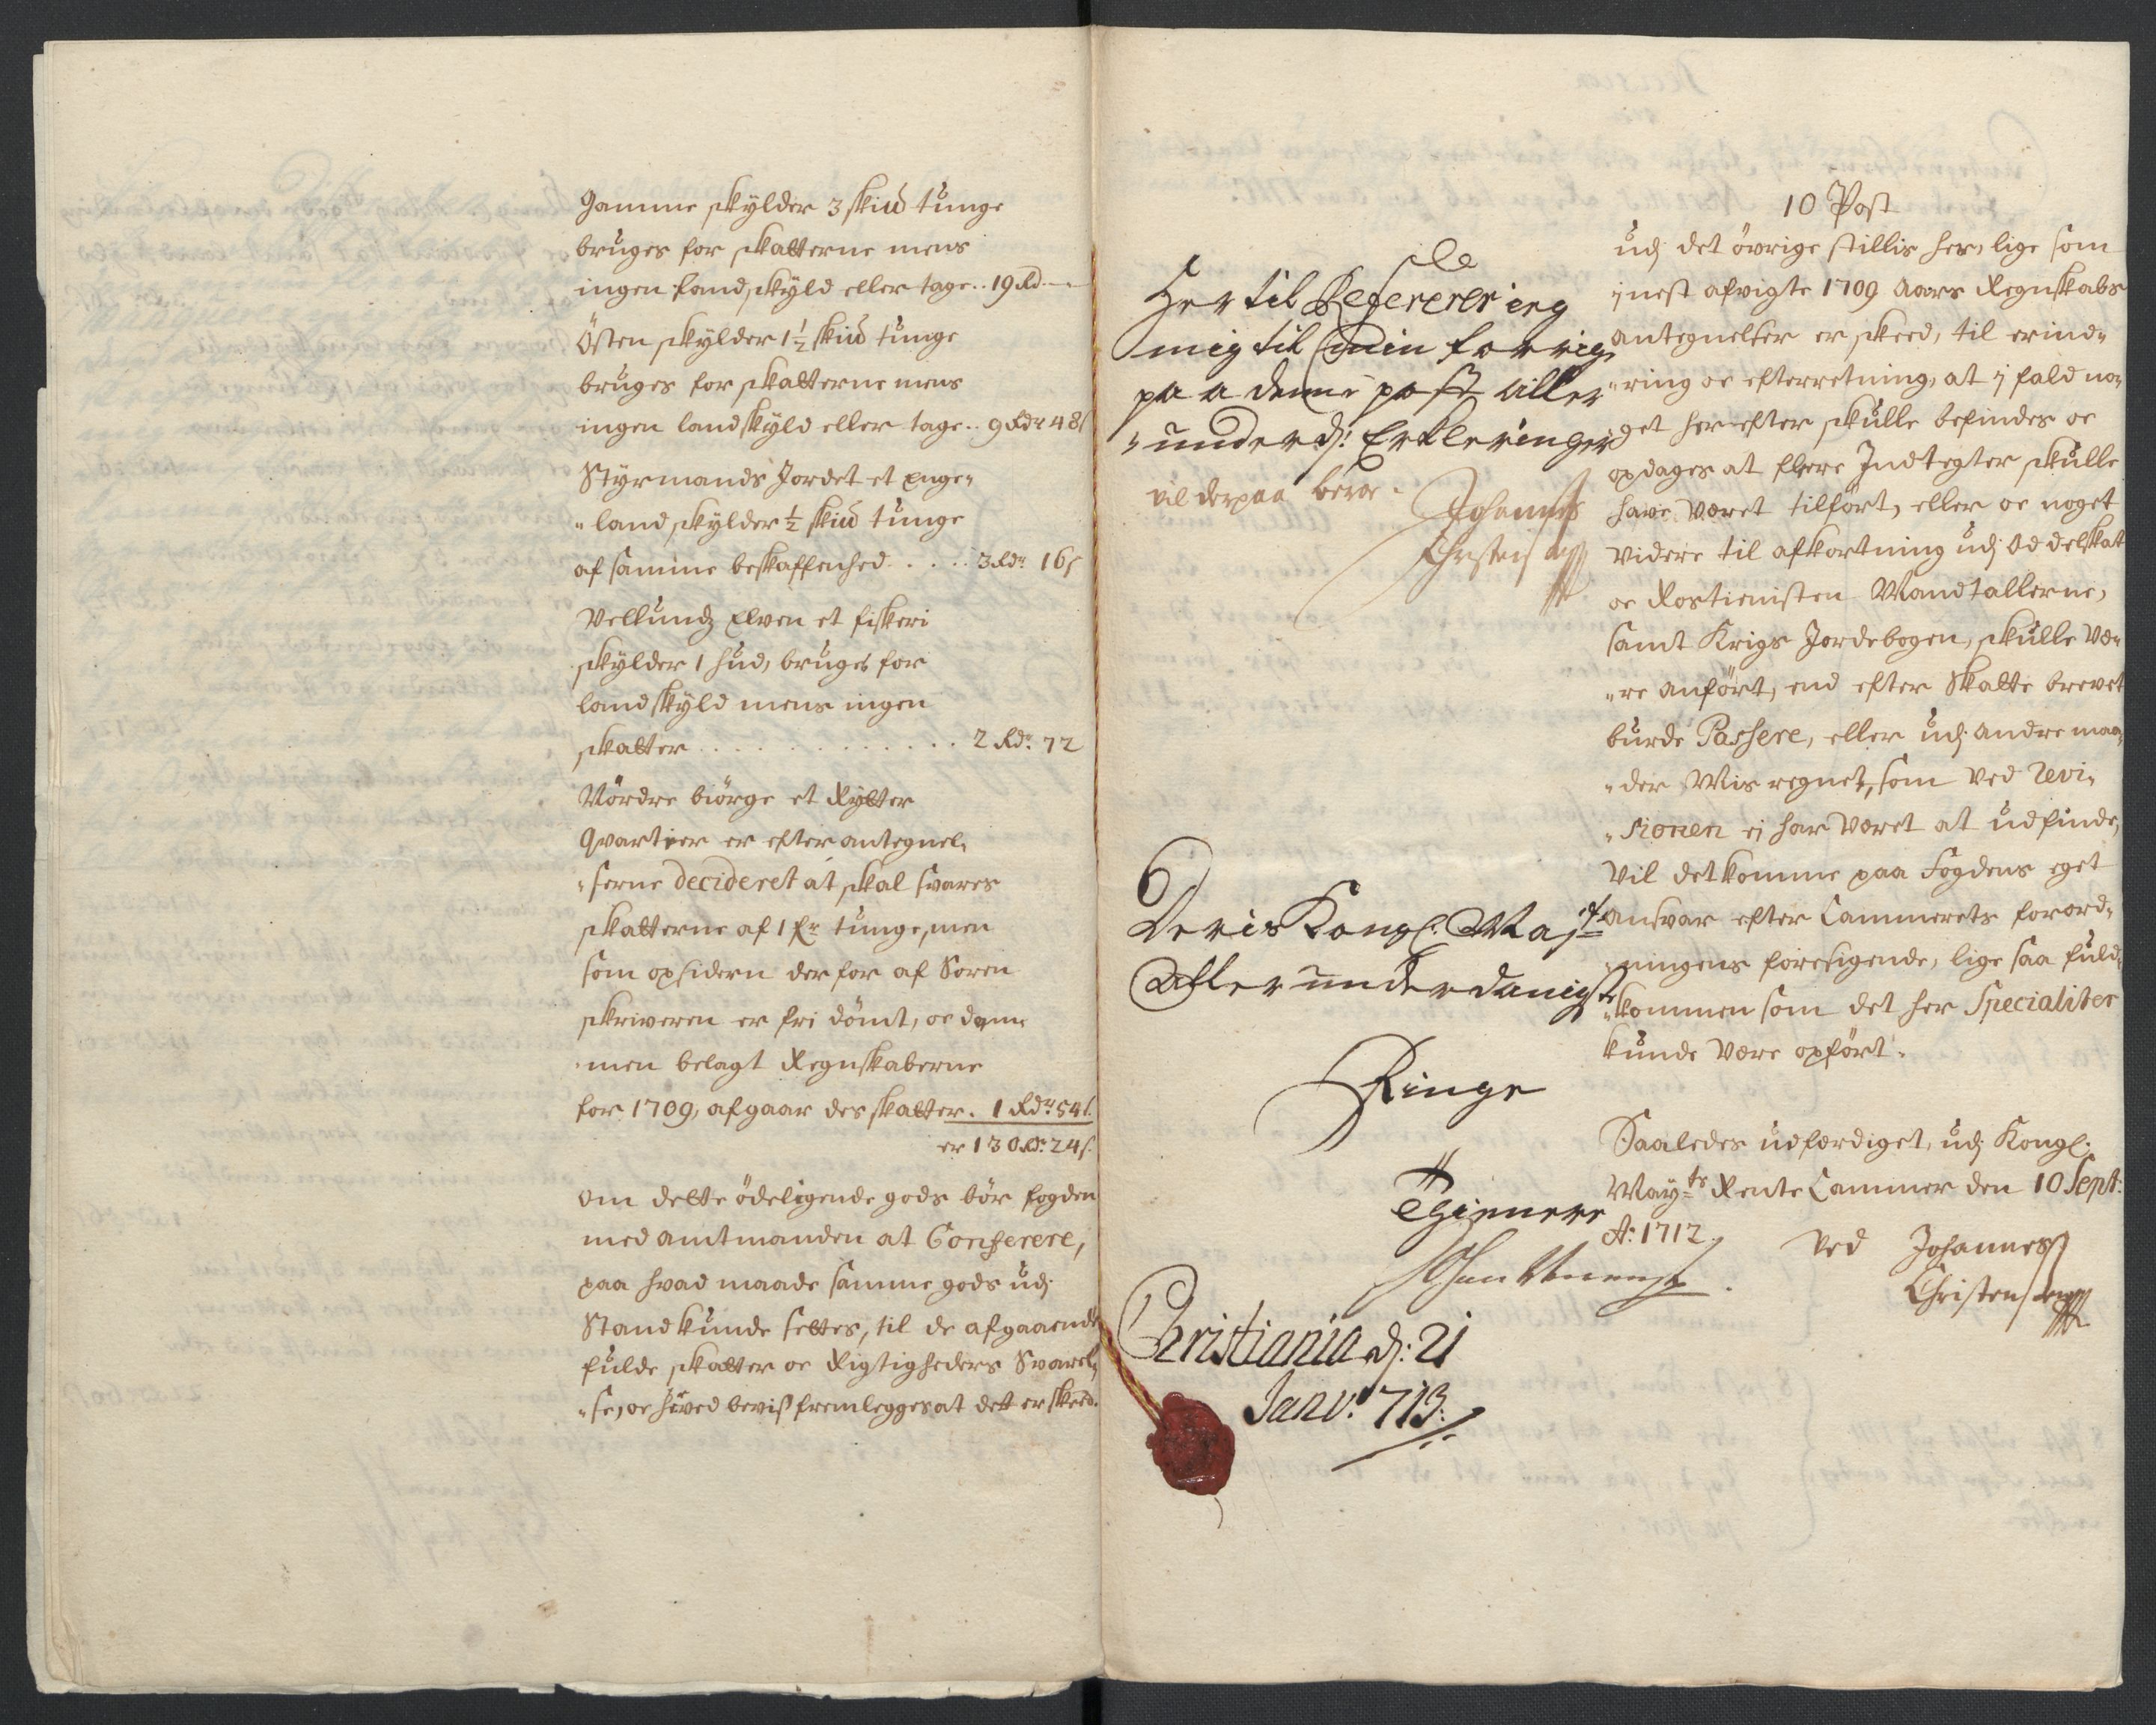 Gamme skylder 3 skiu tunge
bruges for skatterne mens
ingen Landskyld eller tage .. 19 Rd —
Östen skylder 1½ skiu tunge
bruges for skatterne mens
ingen landskyld eller tage .. 9 Rdr 48 s
Styrmands Jordet et Enge„
„land skylder ½ skiu tunge
af samme beskaffenhed . . . . . 3 Rdr 16 s
Vellunds Elven et fiskeri
skylder 1 hud, bruges for
landskyld mens ingen
skatter . . . . . . . . . . . . . 2 Rdr: 72
Nördre biörge et Rytter
Qvarteer er efter antegnel„
„serne decideret at skal svares
skatterne af 1 fr tunge, men
som opsidern der for af Soren
skriveren er fri dömt, oc dom„
„men belagt Regnskaberne
for 1709, afgaar des skatter . 1 Rdr 54 s.
er 130 Rdr: 24 s.
om dette ödeligende gods bör fogden
med amtmanden at Conferere,
paa hvad maade samme gods udj
Stand kunde settes, til de afgaaende
fulde skatter oc Rigtigheders Svarel„
„se, oc hörved beviss fremlegges at dett er skeed.
Her til Refererer ieg
mig til min forrige
paa denne post aller
„underd: Erkleringer
vil derpaa beroe.
Johannes
Christensen
Deris Kongl: Mayts
Aller underdanigste
Ringe
Thienere
Christiania d: 21
Janv: 713:
10 Post
udj det övrige stillis her, lige som
j nest afvigte 1709 Aars Regnskabs
antegnelser er skeed, til erind„
„ring oc efterretning, at j fald no„
„get herefter skulle befindes oc
opdages at flere Indtegter skulle
have veret tilfört, eller oc noget
videre til afkortning udj Oddelskat
oc Rostienisten Mandtallerne,
samt Krigs Jordebogen, skulle ve„
„re anfört, end efter Skatte brevet
burde Passere, eller udj andre maa„
„der Mis regnet, som ved Revi„
„sionen ej har veret at udfinde,
vil det komme paa Fogdens eget
ansvar efter Cammerets forord„
„ningens foresigende, lige saa fuld„
„kommen som det her Specialiter
kunde vere opfört.
Saaledes udferdiget, udj Kongl:
Mayts Rente Cammer den 10 Sept:
Ao: 1712.
ved Johannes
Christensen